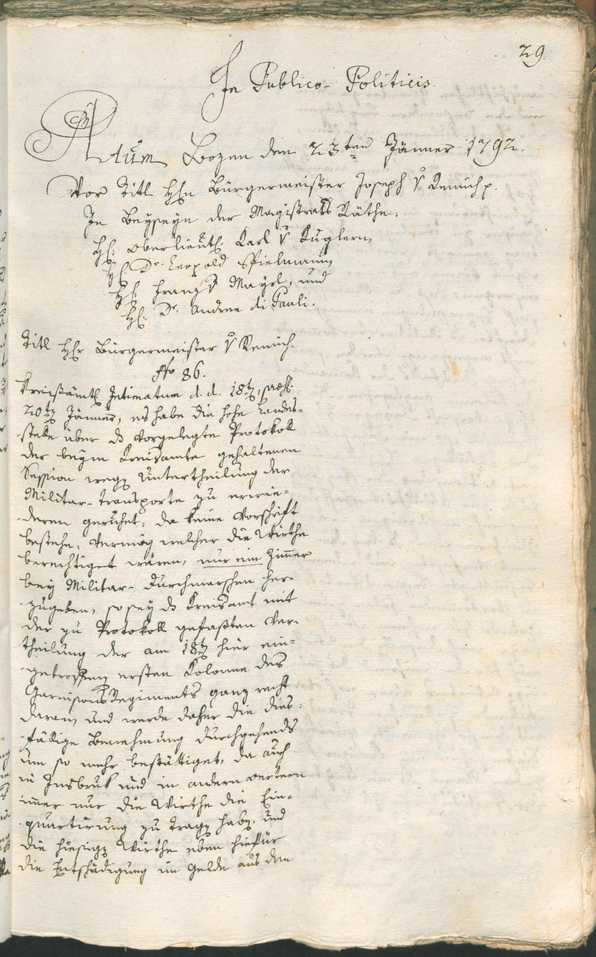 29.
In Publico-Politicis.
Actum Bozen den 23ten Jänner 1792.
Vor Titl Hhn Bürgermeister Joseph v Remich p.
In Beyseyn der Magistrats Räthe.
Hh. Oberlieut. Karl v Kuglern,
Hh Dr. Leopold Spielmann,
Hh Franz v Mayrl, und
Hh. Dr. Andree di Pauli.
Titl Hhr Bürgermeister v Remich.
No 86.
Kreisämtl Intimatum d. d. 18t, praes.
20ten Jänner, es habe die hohe Landes-
stelle über ds vorgelegte Protokoll
der beym Kreisamte gehaltenen
Session wegen Untertheilung der
Militar-transporte zu erwie-
dern geruhet: da keine Vorschrift
bestehe, vermög welcher die Wirthe
berechtiget wären, nur ein Zimmer
bey Militar-Durchmarschen her-
zugeben, so sey ds Kreisamt mit
der zu Protokoll gefaßten Ver-
theilung der am 18ten hier ein-
getroffenen ersten Kolonne des
Garnisons Regiments ganz recht
daran, und werde daher die dies-
fällige Benehmung durchgehends
um so mehr bestättiget, da auch
in Insbruk und in andern Oertern
immer nur die Wirthe die Ein-
quartirung zu tragen haben, und
die hiesigen Wirthe eben hiefür
die Entschädigung im Gelde aus den